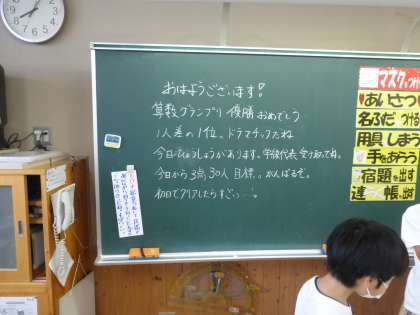 おはようございます!
算数グランプリ優勝おめでとう
1人差の1位。ドラマチックだね
今日ひょうしょうがあります。学級代表 受けとってね。
今日から3点30人目標。。がんばるぞ。
初日でクリアしたらすごい…。
マスクをつけ
あいさつ
名ふだ つける
用具 しまう
手をあらう
宿題を出す
連 帳を出す